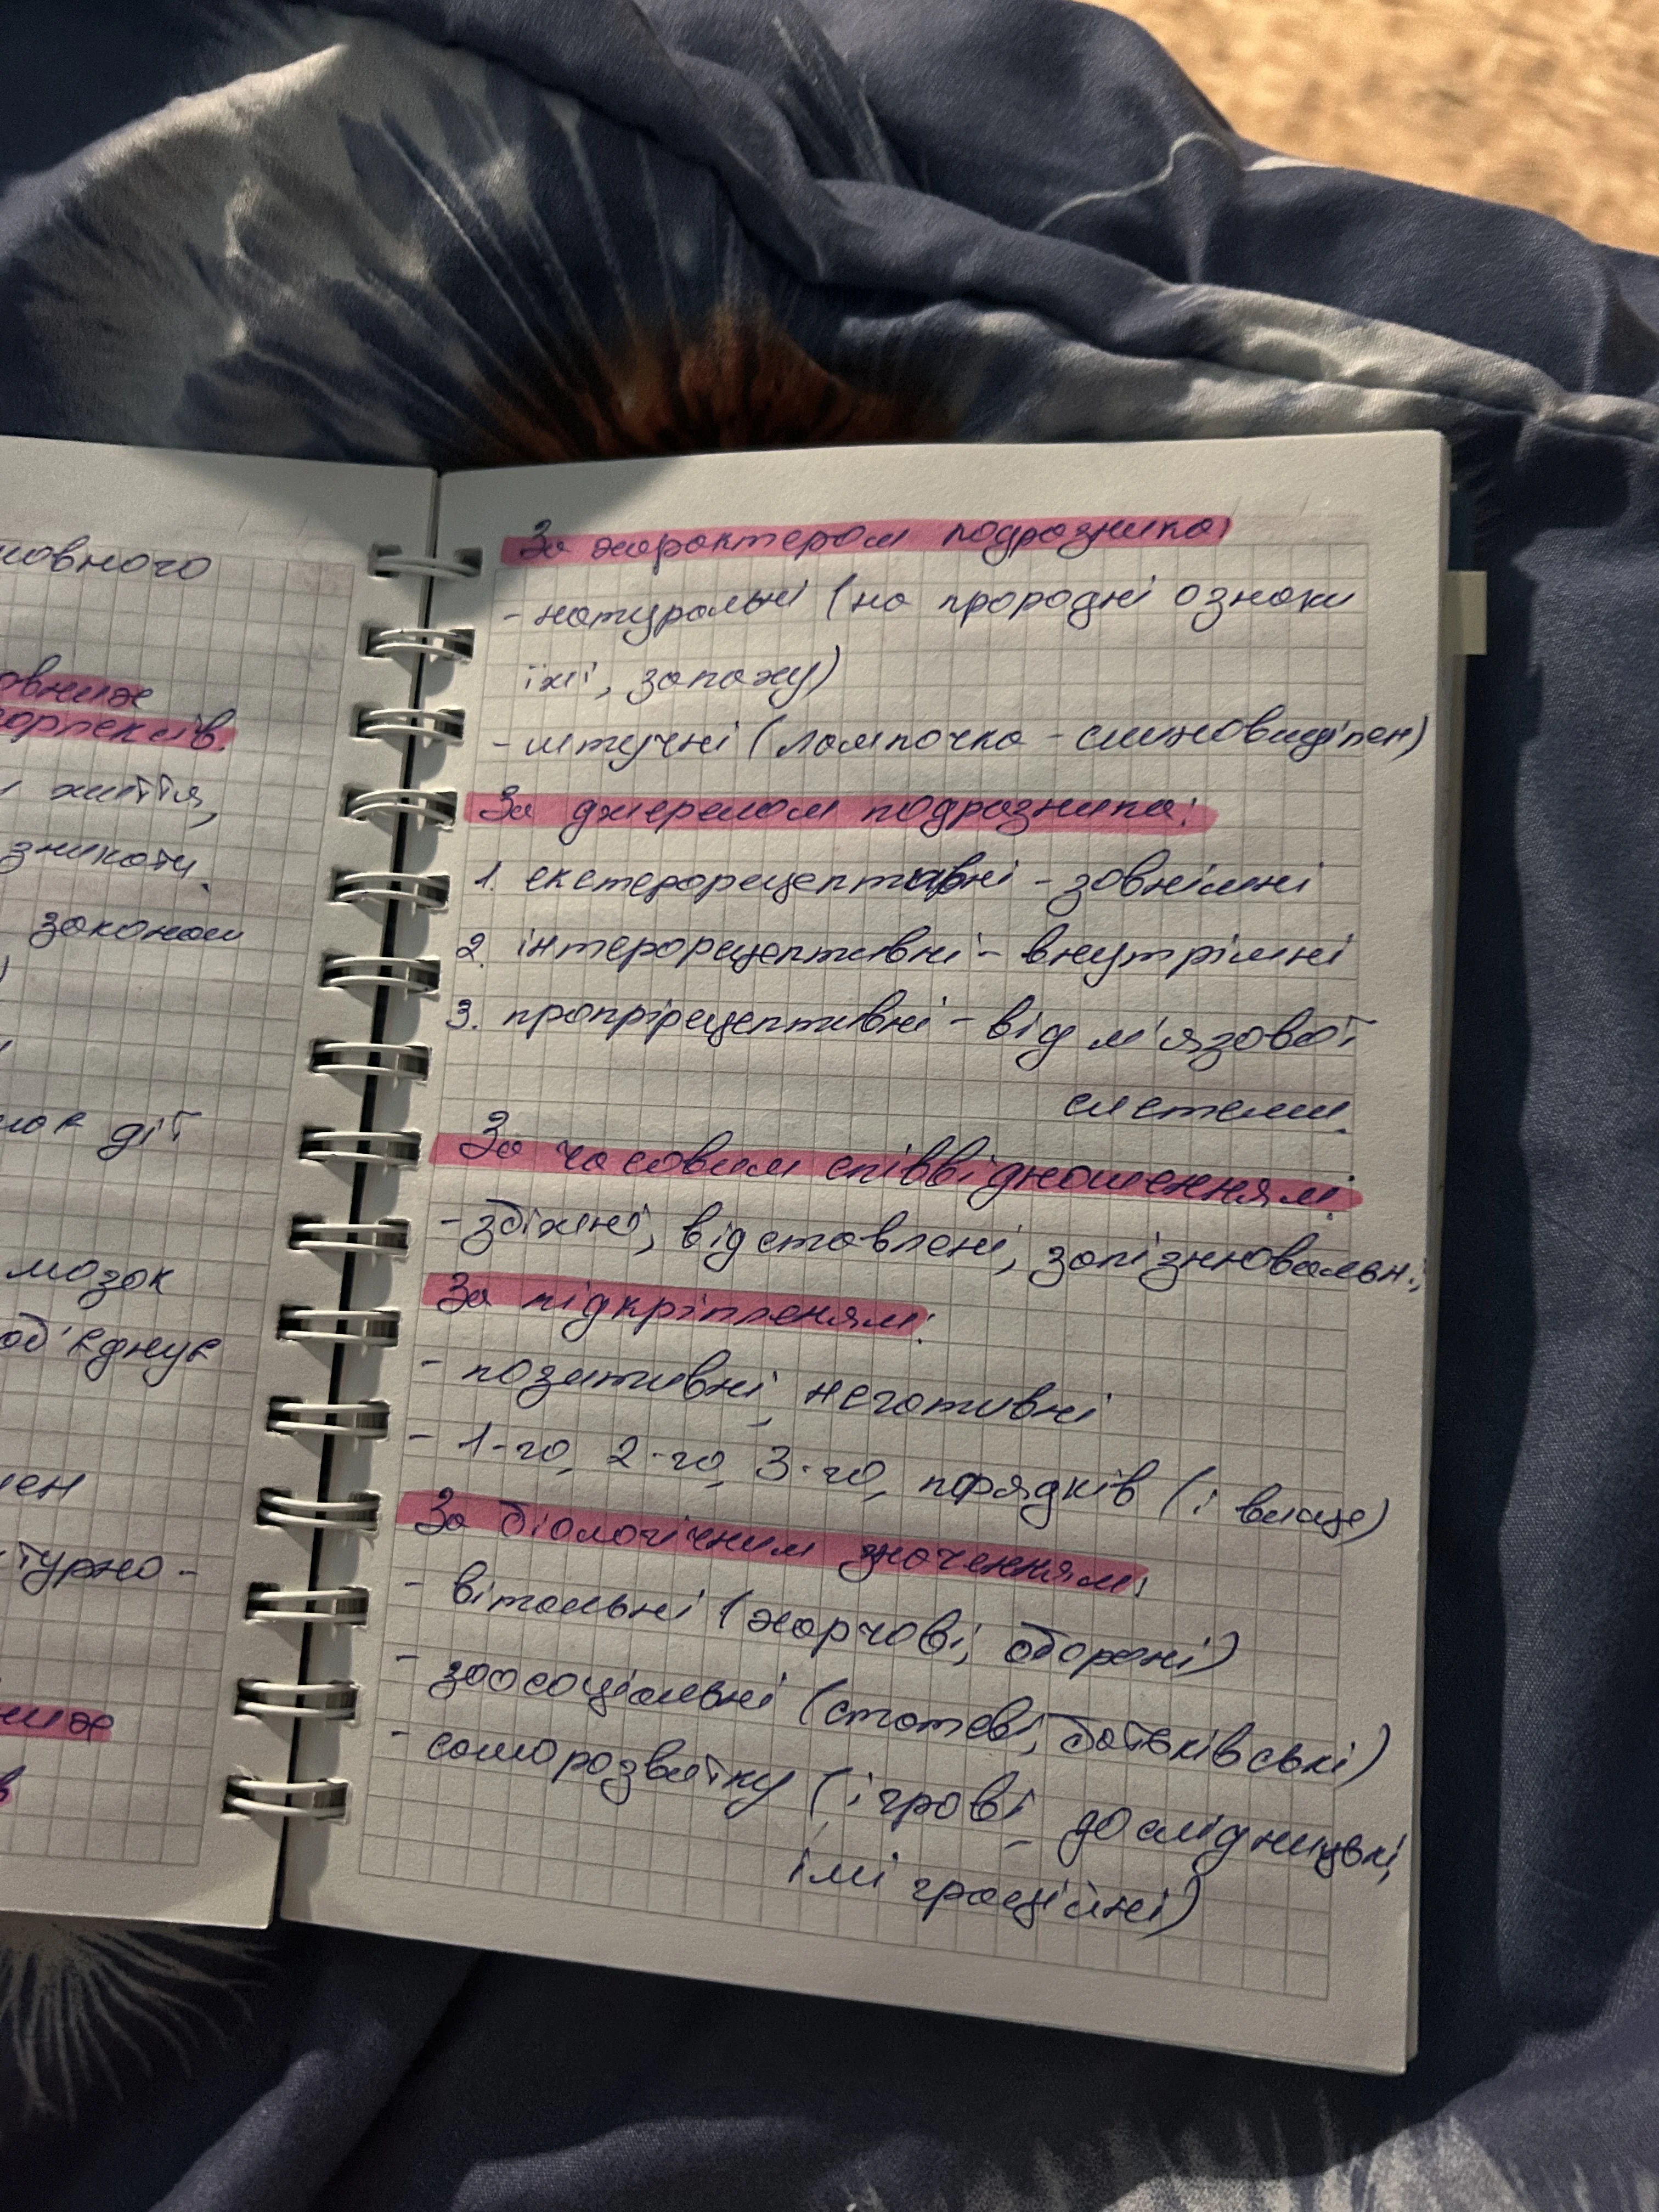 мовного
овних
флексів.
життя,
зникати.
законом
дії
мозок
об'єднує
турно-
них
в
За характером подразника:
- натуральні (на прородні ознаки
їжі, запаху)
- штучні (лампочка - слиновиділен)
За джерелом подразника:
1. екстерорецептивні - зовнішні
2. інтерорецептивні - внутрішні
3. пропрірецептивні - від м'язової
системи.
За часовим співвідношенням:
- збіжні, відставлені, запізнювальні;
За підкріпленям:
- позитивні, негативні
- 1-го, 2-го, 3-го, порядків (і вище)
За біологічним значенням:
- вітальні (харчові, оборонні)
- зоосоціальні (статеві, батьківські)
- саморозвитку (ігрові, дослідницькі,
імі граційні)